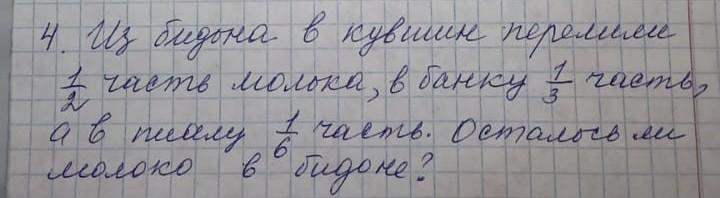 4. Из бидона в кувшин перелили
1/2 часть молока, в банку 1/3 часть,
а в пиалу 1/6 часть. Осталось ли
молоко в бидоне?